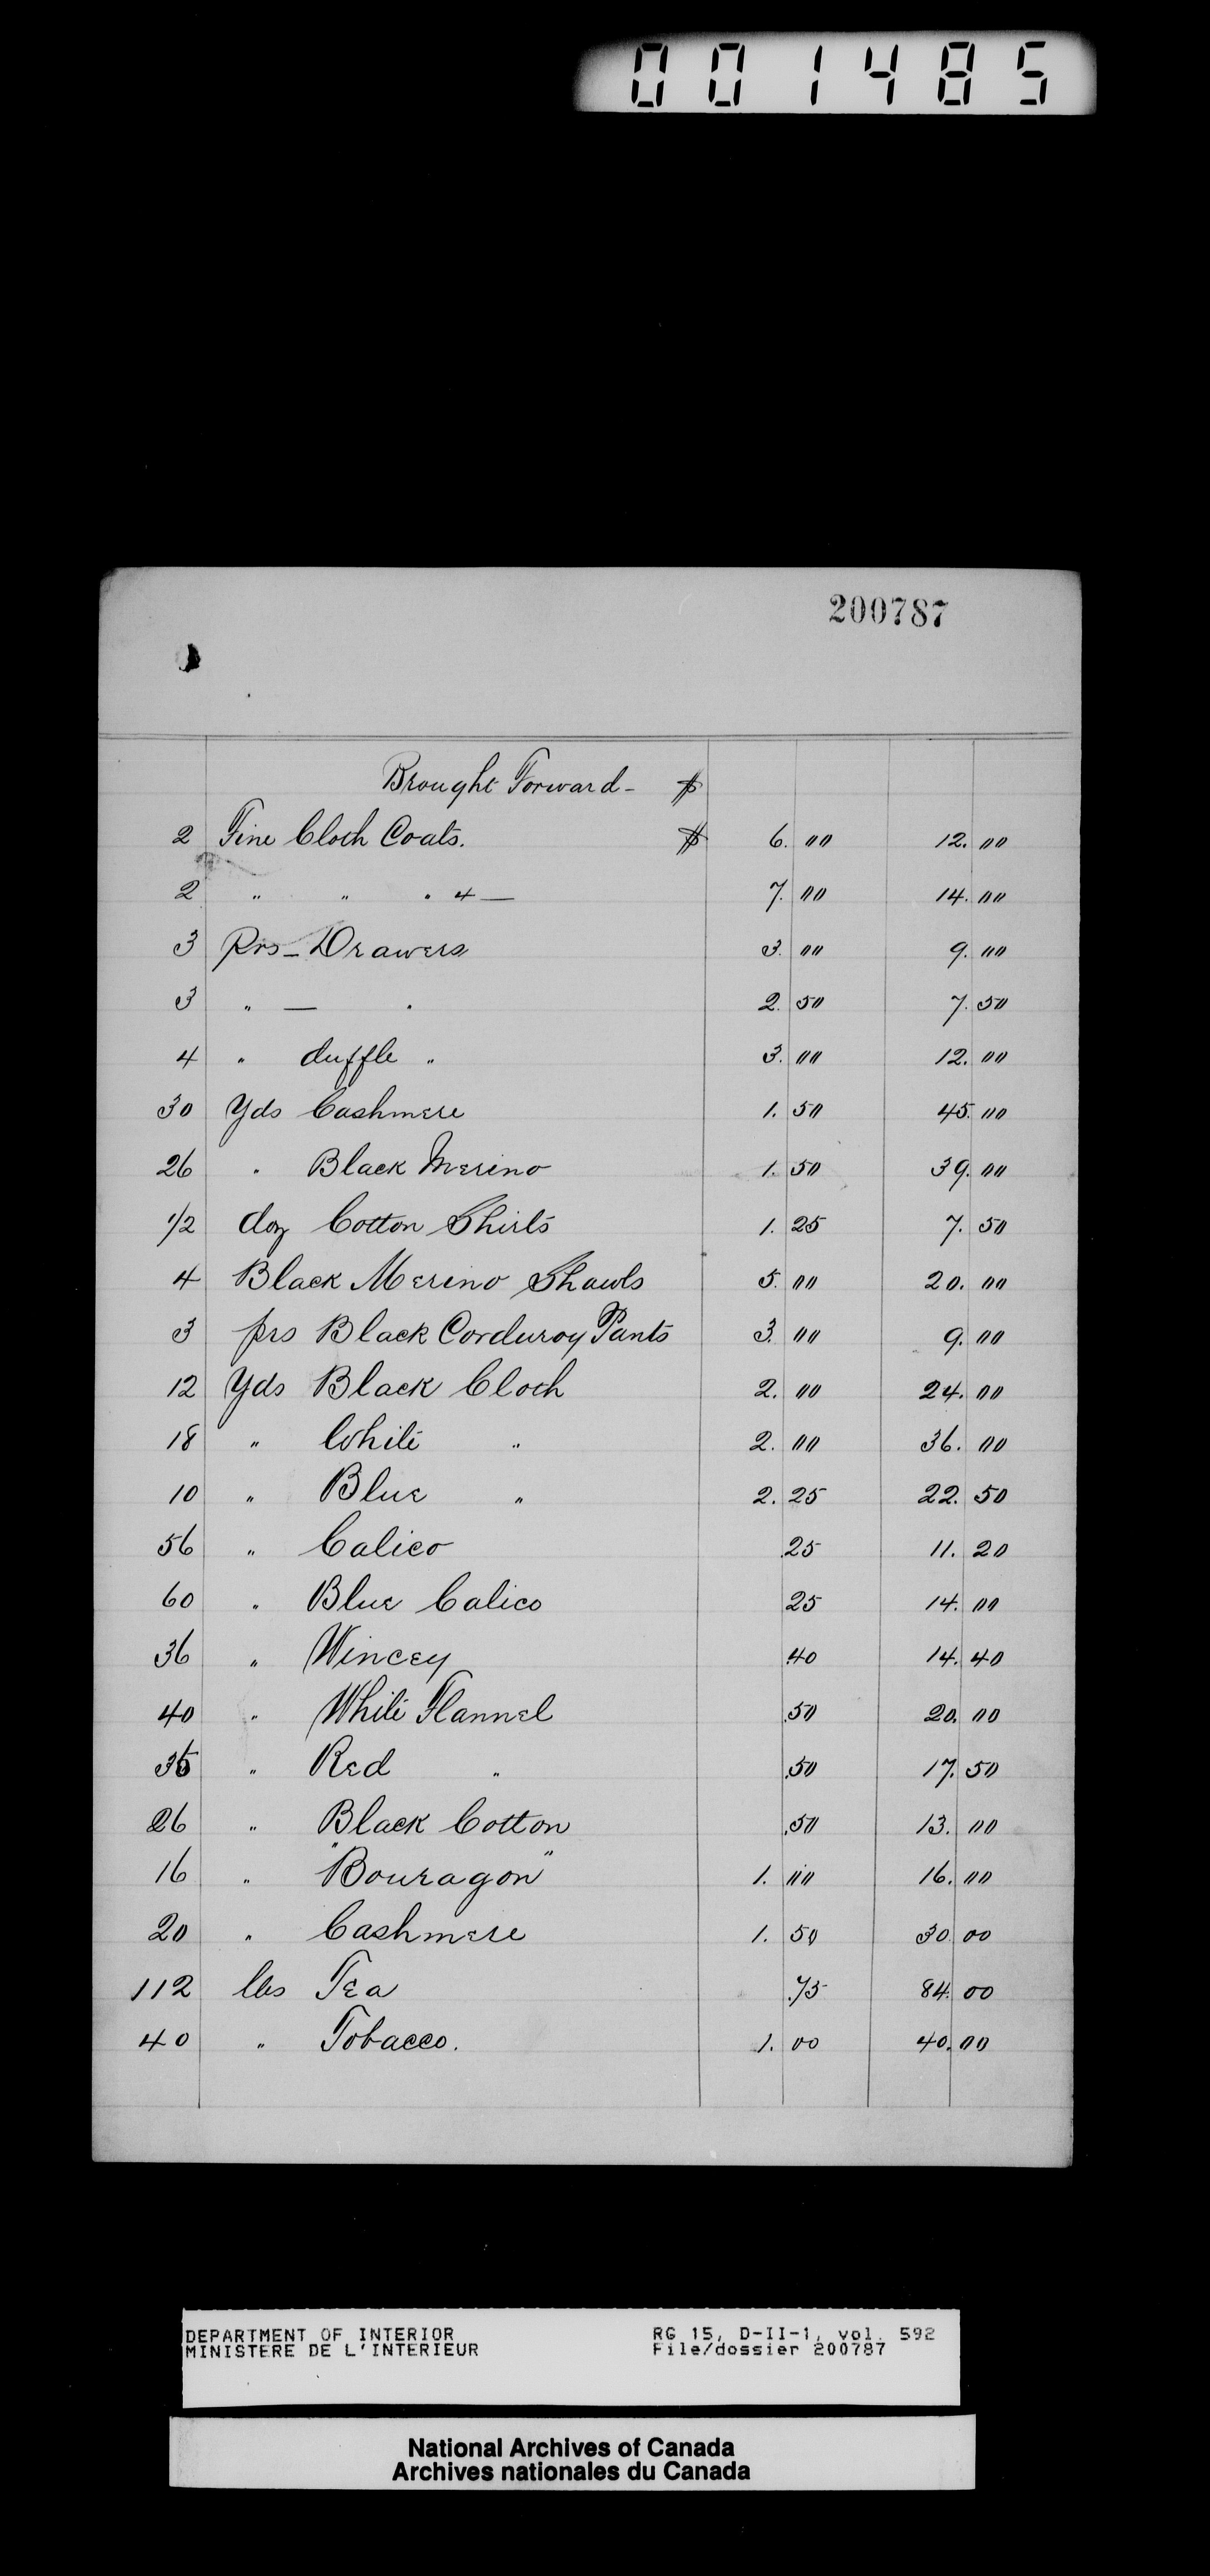 001485
200787
Brought Forward - $
2 Fine Cloth Coats. $ 6. 00 12. 00
2 " " " 4 — 7. 00 14. 00
3 Prs - Drawers 3. 00 9. 00
3 " — " 2. 50 7. 50
4 " duffle " 3. 00 12. 00
30 Yds Cashmere 1. 50 45. 00
26 " Black Merino 1. 50 39. 00
1/2 doz Cotton Shirts 1. 25 7. 50
4 Black Merino Shawls 5. 00 20. 00
3 prs Black Corduroy Pants 3. 00 9. 00
12 Yds Black Cloth 2. 00 24. 00
18 " White " 2. 00 36. 00
10 " Blue " 2. 25 22. 50
56 " Calico .25 11. 20
60 " Blue Calico 25 14. 00
36 " Wincey .40 14. 40
40 " White Flannel .50 20. 00
35 " Red " .50 17. 50
26 " Black Cotton .50 13. 00
16 " "Bouragon" 1. 00 16. 00
20 " Cashmere 1. 50 30 00
112 lbs Tea .75 84. 00
40 " Tobacco. 1. 00 40. 00
DEPARTMENT OF INTERIOR RG 15, D-II-1, vol. 592
MINISTERE DE L'INTERIEUR File/dossier 200787
National Archives of Canada
Archives nationales du Canada